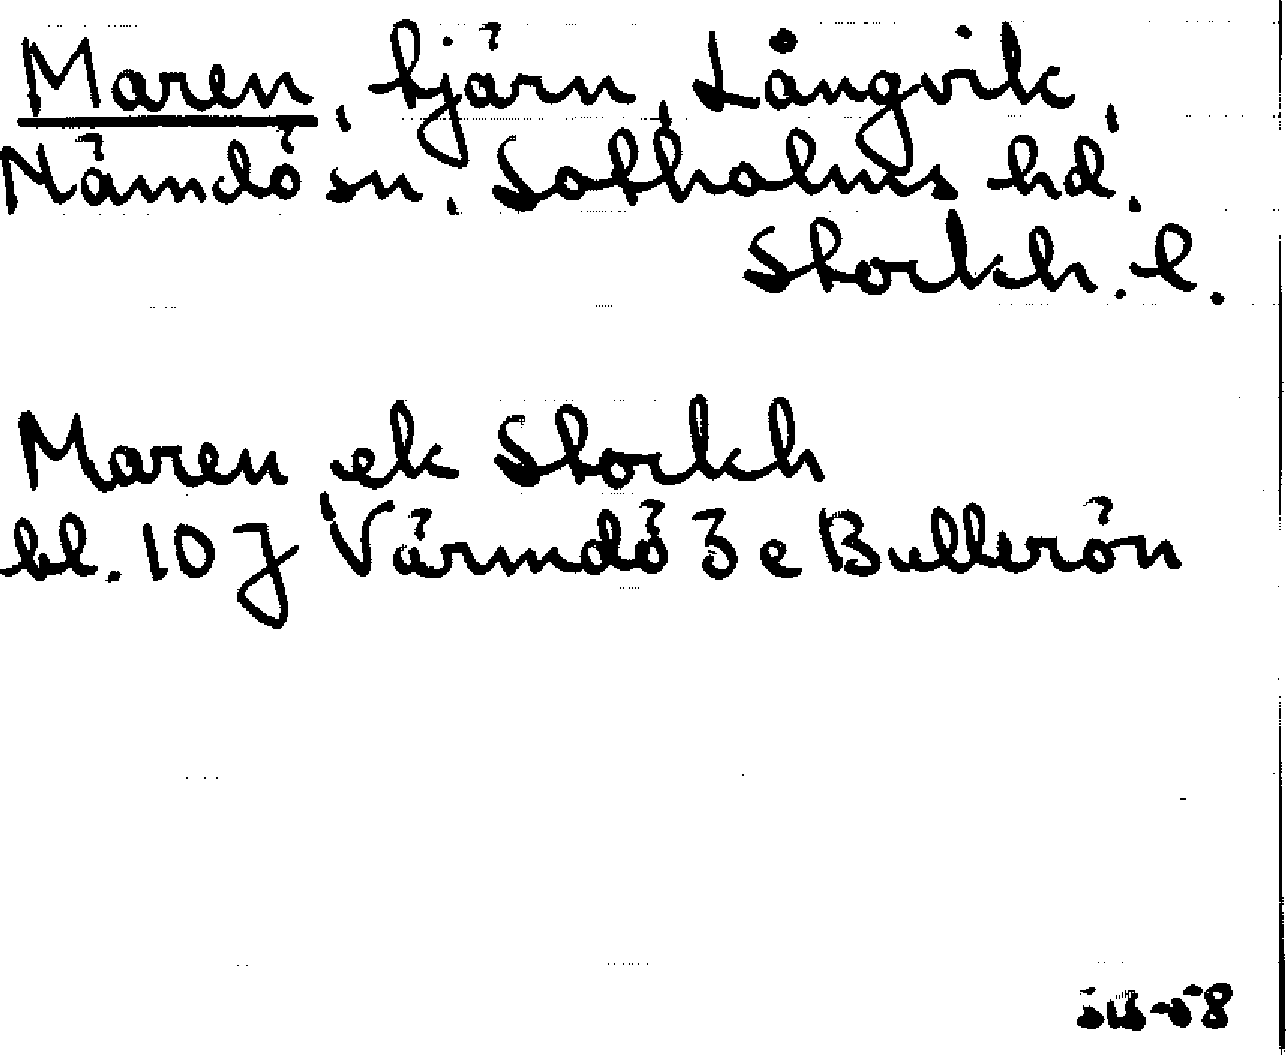 Maren, tjärn, Långvik,
Nämdö sn, Sotholms hd.
Stockh. l.
Maren, ek Stockh
bl. 10J Värmdö 3e Bullerön